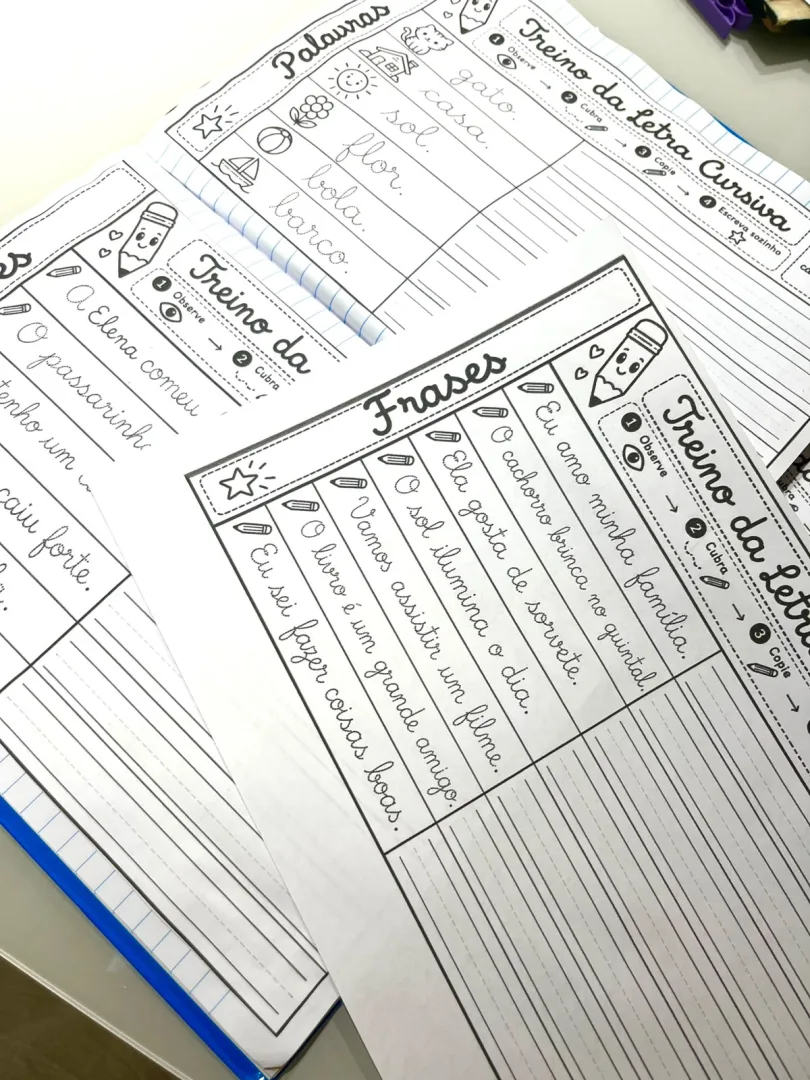 Treino da Letra Cursiva
1 Observe → 2 Cubra → 3 Copie → 4 Escreva sozinho
Palavras
gato.
casa.
sol.
flor.
bola.
barco.
Treino da
1 Observe → 2 Cubra
A Elena comeu
O
tenho um
caiu forte.
Treino da Letra
1 Observe → 2 Cubra → 3 Copie →
Frases
Eu amo minha família.
O cachorro brinca no quintal.
Ela gosta de sorvete.
O sol ilumina o dia.
Vamos assistir um filme.
O livro é um grande amigo.
Eu sei fazer coisas boas.